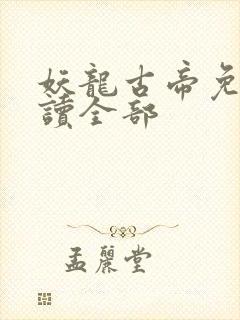 妖龍古帝免
讀全部
孟麗堂